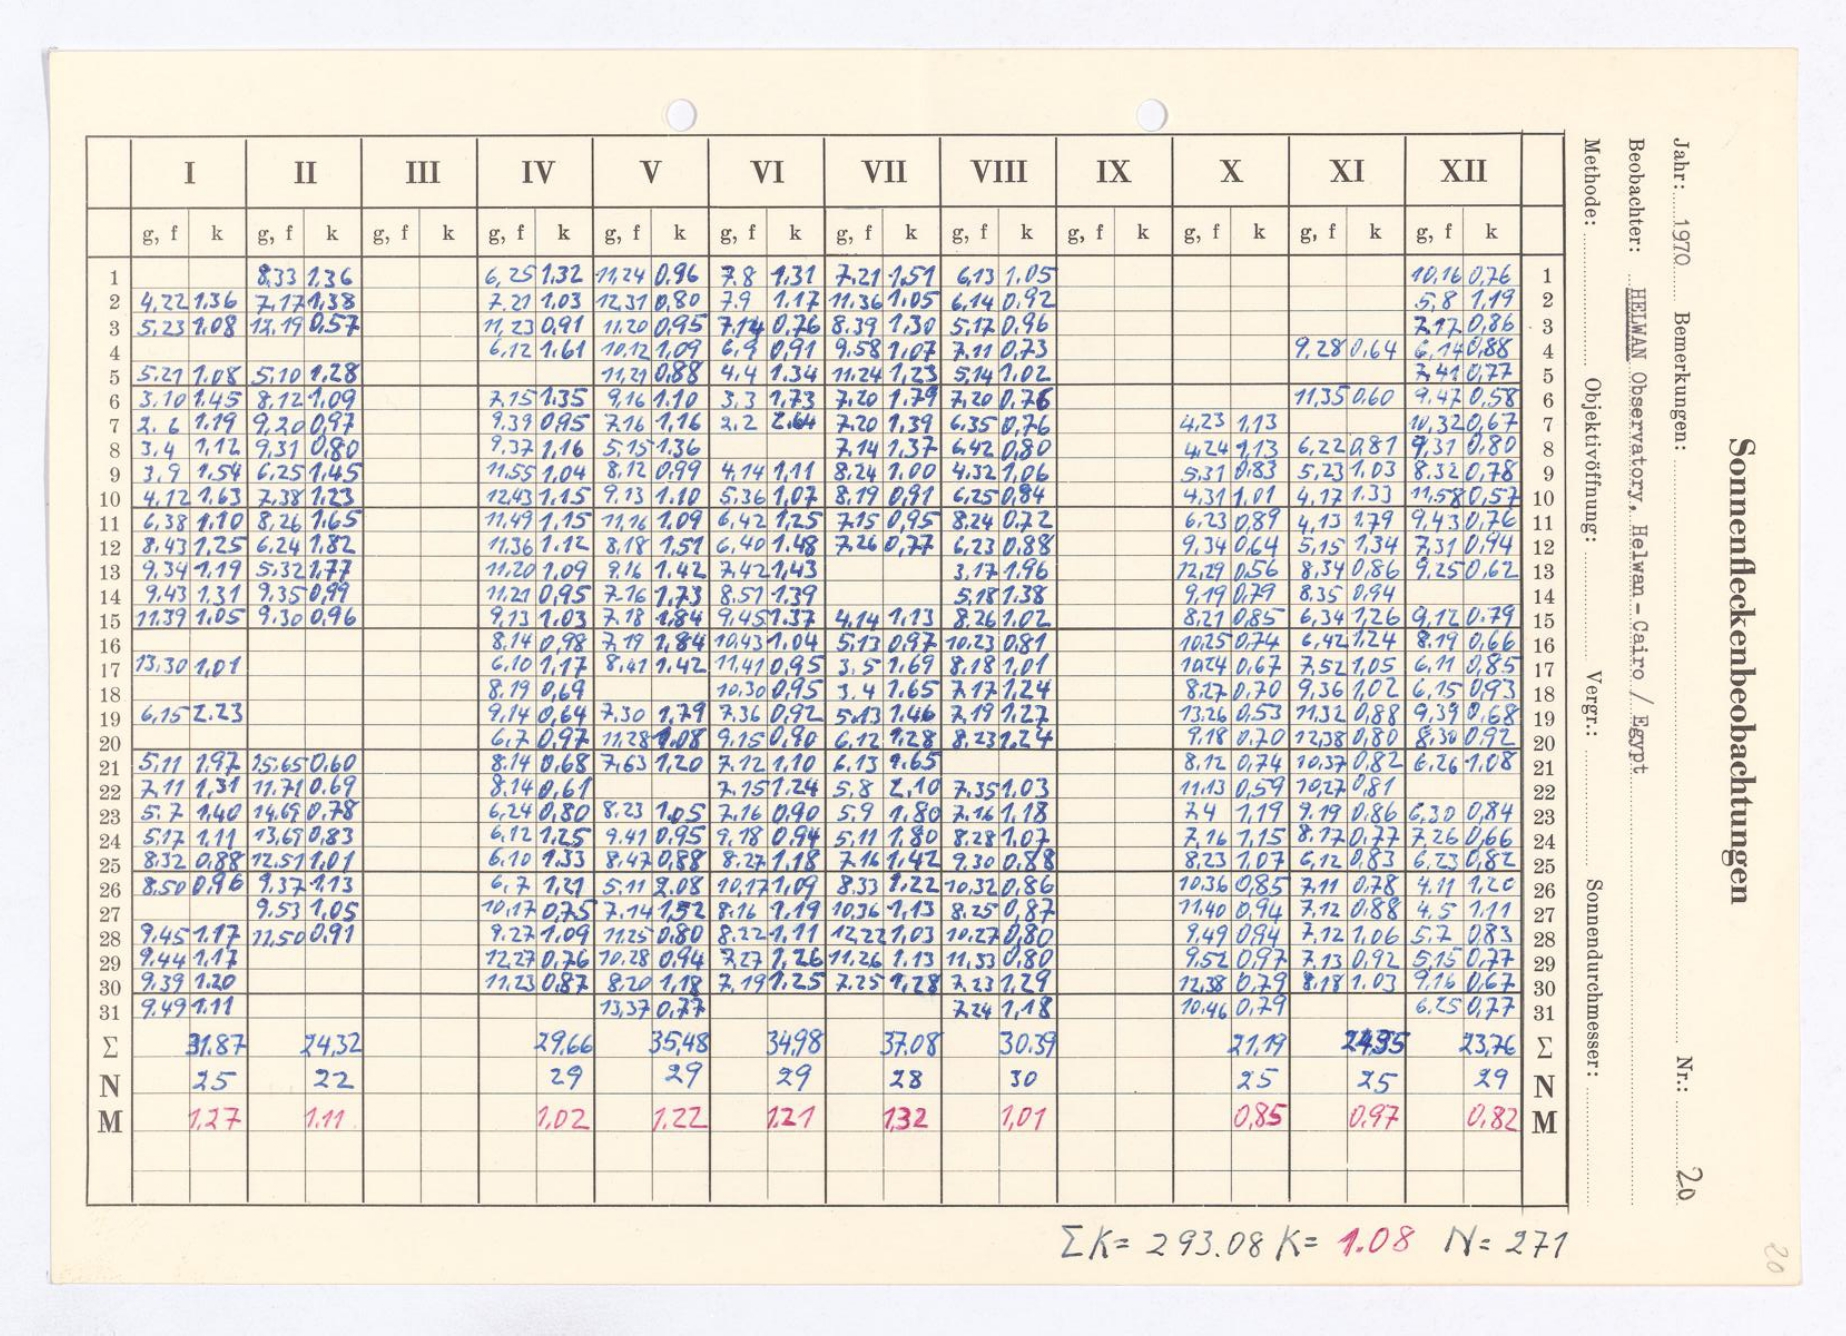 Sonnenfleckenbeobachtungen
Jahr: 1970 Bemerkungen: Nr.: 20
Beobachter: HELWAN Observatory, Helwan-Cairo / Egypt
Methode: Objektivöffnung: Vergr.: Sonnendurchmesser:
I II III IV V VI VII VIII IX X XI XII
g, f k g, f k g, f k g, f k g, f k g, f k g, f k g, f k g, f k g, f k g, f k g, f k
1 8,33 1,36 6,25 1,32 11,24 0,96 7.8 1,31 7,21 1,51 6,13 1.05 10,16 0,76 1
2 4,22 1,36 7,17 1,38 7.21 1,03 12,31 0,80 7.9 1,17 11.36 1.05 6,14 0,92 5,8 1,19 2
3 5,23 1,08 12,19 0,57 11,23 0,91 11.20 0,95 7,14 0,76 8.39 1,30 5,17 0,96 7,17 0,86 3
4 6,12 1.61 10,12 1,09 6,9 0,91 9,58 1,07 7,11 0,73 9,28 0,64 6,14 0,88 4
5 5,21 1,08 5,10 1,28 11,21 0,88 4.4 1.34 11.24 1,23 5,14 1,02 7,41 0,77 5
6 3,10 1,45 8,12 1,09 7,15 1.35 9,16 1.10 3.3 1,73 7,20 1.79 7,20 0,76 11,35 0,60 9,47 0,58 6
7 2.6 1.19 9,20 0,97 9.39 0,95 7.16 1,16 2.2 2.64 7.20 1.39 6.35 0,76 4,23 1,13 10,32 0,67 7
8 3,4 1,12 9,31 0,80 9,37 1,16 5,15 1.36 7,14 1.37 6,42 0,80 4,24 1,13 6,22 0,81 9,31 0,80 8
9 3,9 1.54 6,25 1,45 11,55 1,04 8,12 0,99 4,14 1,11 8.24 1.00 4.32 1,06 5,31 0,83 5,23 1.03 8,32 0,78 9
10 4,12 1,63 7,38 1,23 12,43 1,15 9,13 1.10 5,36 1,07 8,19 0,91 6,25 0,84 4,31 1,01 4,17 1.33 11,58 0,57 10
11 6,38 1,10 8,26 1,65 11,49 1,15 11,16 1.09 6,42 1,25 7.15 0,95 8,24 0.72 6,23 0,89 4,13 1,79 9,43 0,76 11
12 8.43 1,25 6,24 1,82 11.36 1.12 8,18 1,51 6,40 1,48 7,26 0,77 6,23 0,88 9,34 0,64 5,15 1,34 7,31 0,94 12
13 9,34 1,19 5,32 1,77 11,20 1,09 9,16 1.42 7,42 1,43 3,17 1,96 12,29 0,56 8,34 0,86 9,25 0,62 13
14 9,43 1.31 9.35 0,99 11,21 0,95 7.16 1,73 8.51 1,39 5,18 1.38 9,19 0,79 8.35 0,94 14
15 11.39 1.05 9.30 0,96 9,13 1.03 7.18 1,84 9,45 1.37 4,14 1,13 8.26 1.02 8,21 0,85 6,34 1,26 9,12 0.79 15
16 8,14 0,98 7,19 1,84 10,43 1.04 5,13 0,97 10,23 0,81 10,25 0,74 6,42 1,24 8,19 0,66 16
17 13.30 1,01 6,10 1,17 8,41 1.42 11,41 0,95 3.5 1.69 8,18 1,01 10,24 0,67 7,52 1,05 6,11 0,85 17
18 8,19 0,69 10,30 0,95 3.4 1.65 7,17 1,24 8,27 0,70 9,36 1,02 6,15 0,93 18
19 6,15 2.23 9,14 0,64 7,30 1,79 7,36 0,92 5,13 1.46 7,19 1.27 13.26 0,53 11,32 0,88 9,39 0,68 19
20 6.7 0,97 11,28 1.08 9.15 0.90 6.12 1,28 8.23 1,24 9,18 0,70 12,38 0,80 8,30 0,92 20
21 5,11 1,97 15,65 0,60 8.14 0,68 7,63 1,20 7.12 1,10 6.13 1.65 8,12 0,74 10,37 0,82 6,26 1,08 21
22 7,11 1,31 11.71 0.69 8,14 0,61 7.15 1.24 5.8 2,10 7,35 1.03 11,13 0,59 10,27 0,81 22
23 5.7 1,40 14,69 0,78 6,24 0,80 8.23 1.05 7.16 0,90 5.9 1.80 7,16 1.18 7.4 1,19 9.19 0,86 6,30 0,84 23
24 5,17 1.11 13,69 0,83 6,12 1,25 9.41 0,95 9,18 0,94 5,11 1,80 8.28 1,07 7,16 1,15 8,17 0,77 7,26 0,66 24
25 8.32 0,88 12.51 1,01 6.10 1.33 8,47 0,88 8,27 1,18 7,16 1,42 9.30 0,88 8,23 1,07 6,12 0,83 6,23 0,82 25
26 8,50 0,96 9,37 1,13 6,7 1,21 5,11 2.08 10,17 1,09 8.33 1,22 10,32 0,86 10,36 0,85 7,11 0,78 4,11 1,20 26
27 9.53 1,05 10,17 0,75 7,14 1,52 8,16 1.19 10,36 1,13 8.25 0,87 11.40 0,94 7,12 0,88 4.5 1.11 27
28 9,45 1,17 11,50 0,91 9.27 1,09 11,25 0,80 8.22 1,11 12,22 1,03 10,27 0,80 9,49 0,94 7,12 1,06 5.7 0,83 28
29 9,44 1,17 12,27 0,76 10.28 0,94 7,27 1,26 11.26 1.13 11,33 0,80 9,52 0,97 7,13 0,92 5,15 0,77 29
30 9,39 1.20 11,23 0,87 8,20 1,18 7,19 1.25 7.25 1,28 7,23 1,29 12,38 0,79 8,18 1.03 9,16 0,67 30
31 9.49 1.11 13,37 0,77 7,24 1,18 10,46 0,79 6.25 0,77 31
Σ 31.87 24,32 29,66 35,48 34,98 37.08 30.39 21,19 24,35 23,76 Σ
N 25 22 29 29 29 28 30 25 25 29 N
M 1,27 1.11 1,02 1.22 1.21 1,32 1,01 0,85 0,97 0,82 M
ΣK= 293.08 K= 1.08 N= 271
20